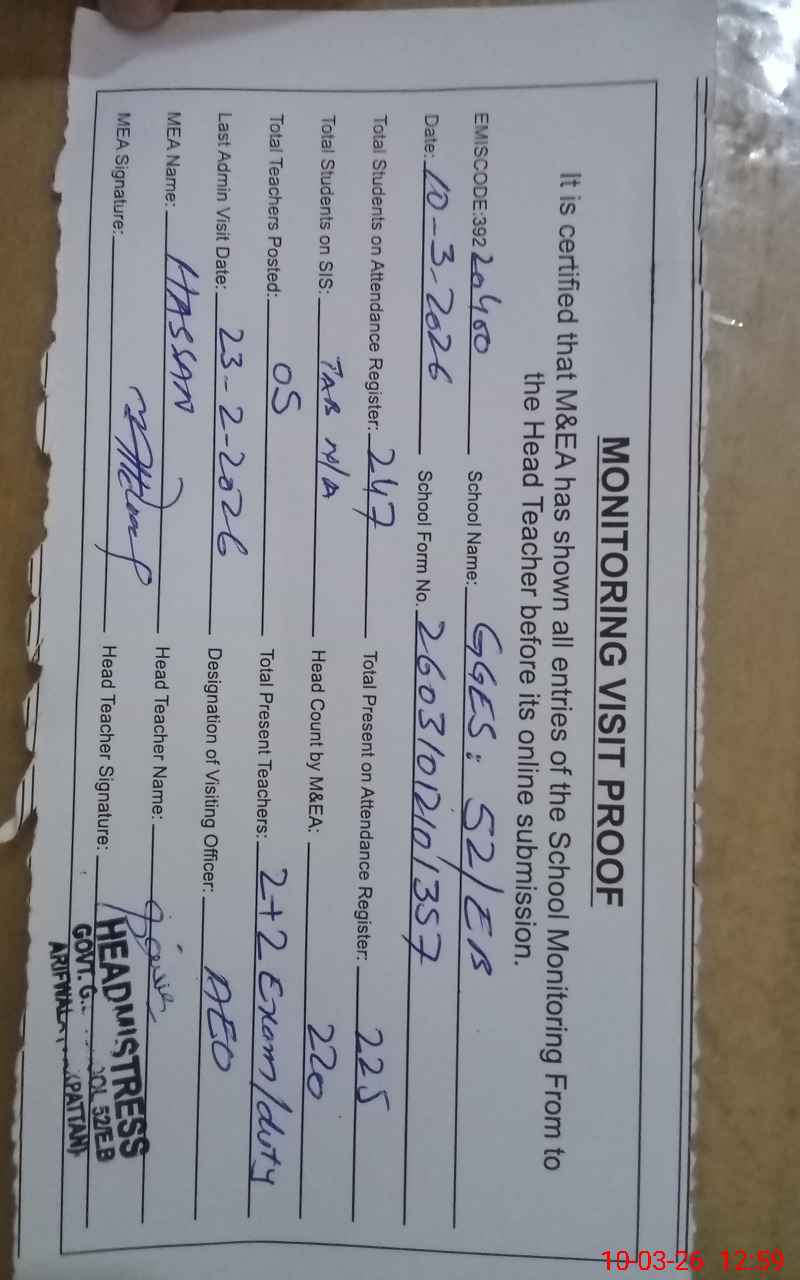 MONITORING VISIT PROOF
It is certified that M&EA has shown all entries of the School Monitoring From to
the Head Teacher before its online submission.
EMISCODE:39220400 School Name: GGES: 52/EB
Date: 10-3-2026 School Form No. 26031012101357
Total Students on Attendance Register: 247 Total Present on Attendance Register: 225
Total Students on SIS: TAB N/A Head Count by M&EA: 220
Total Teachers Posted: 05 Total Present Teachers: 2+2 Exam/duty
Last Admin Visit Date: 23-2-2026 Designation of Visiting Officer: AEO
MEA Name: HASSAN Head Teacher Name:
MEA Signature: Head Teacher Signature:
HEADMISTRESS
GOVT. G. 52/E.B
ARIFWALA PATTAN)
10-03-26 12:59